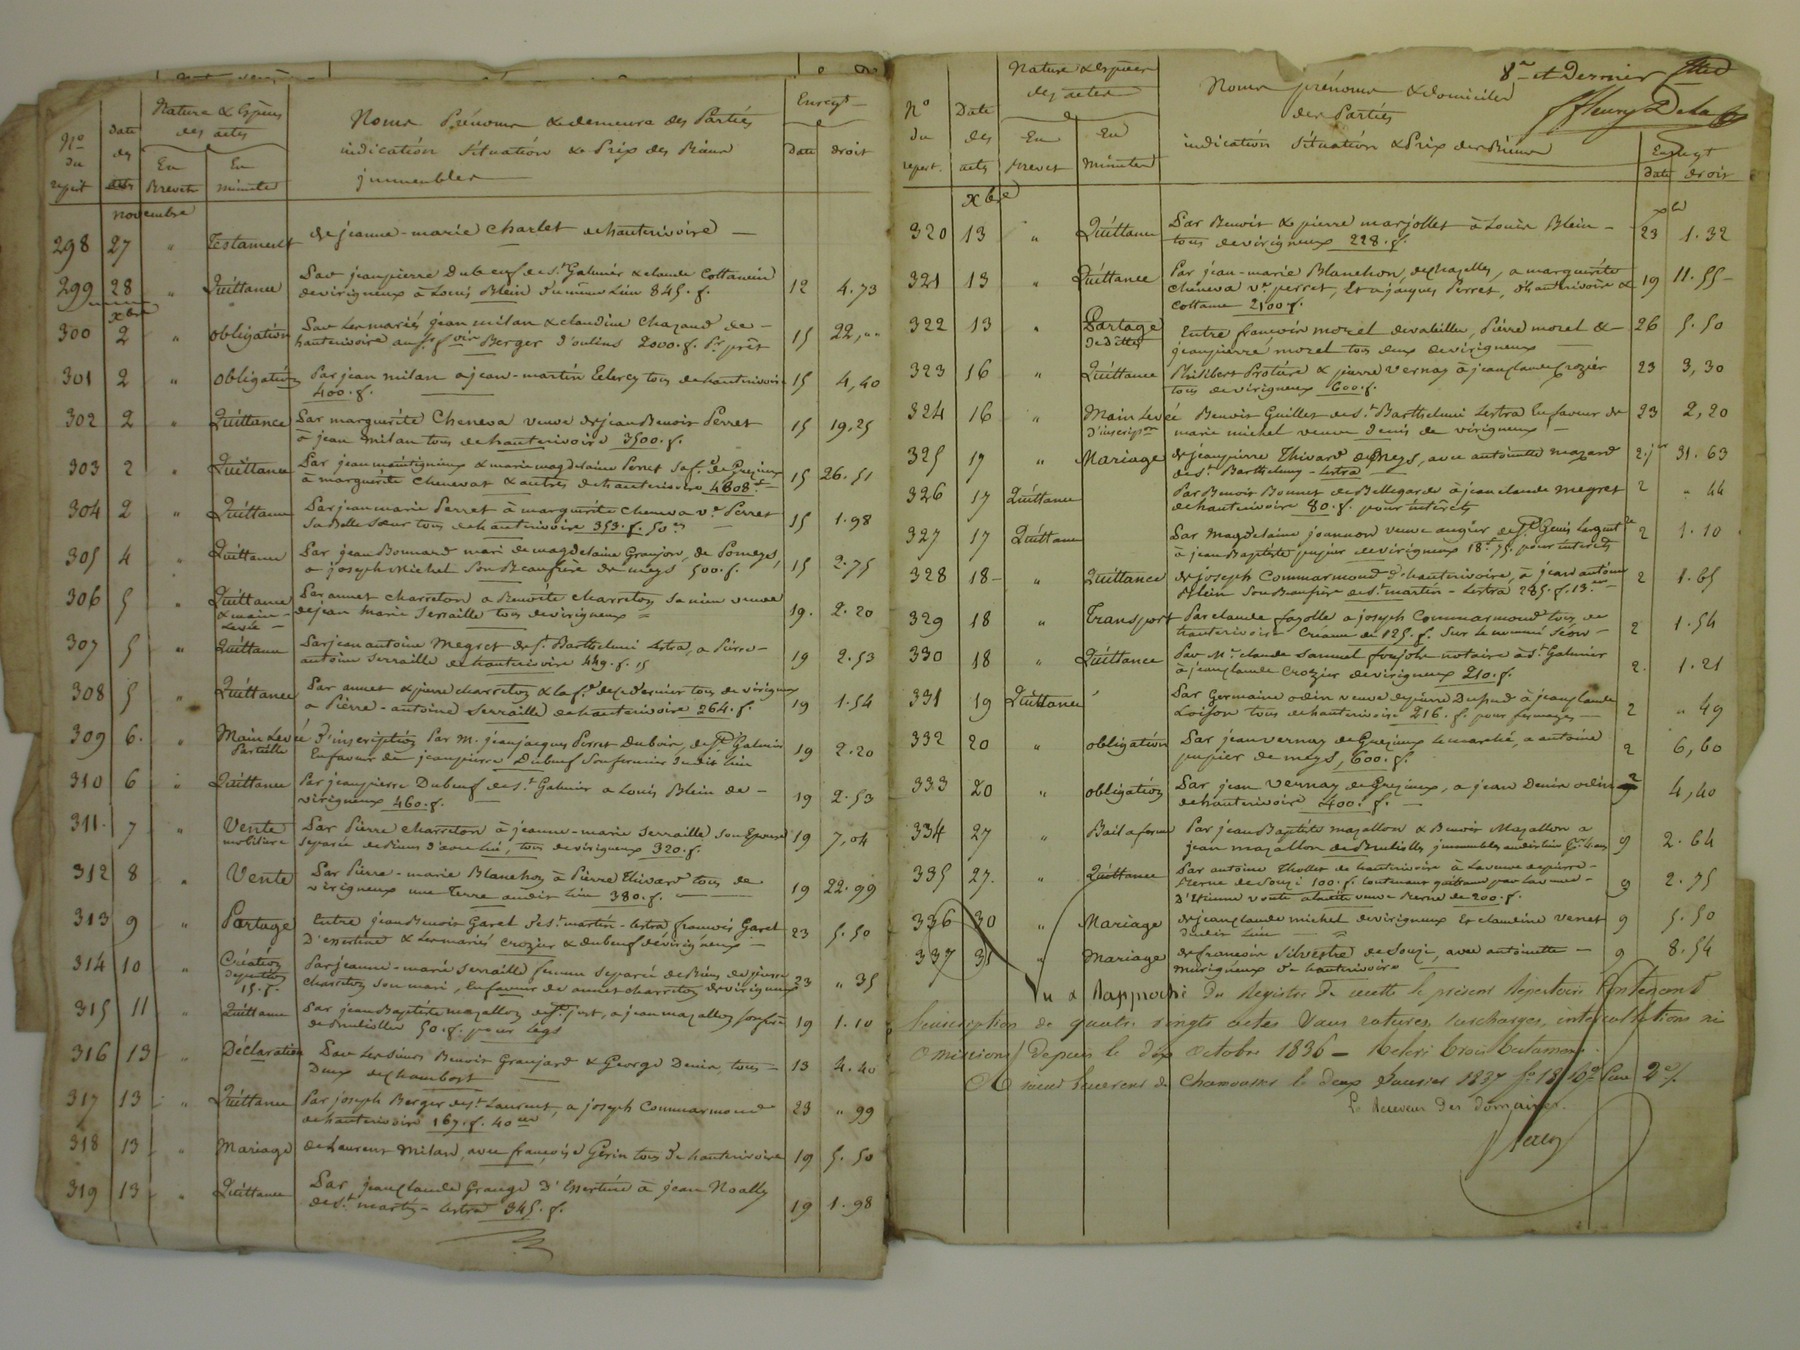 Nos du repert
Date des actes
Nature & Espèces des actes
En Brevets
En minutes
Noms Prénoms & demeure des Parties
indication situation & Prix des Biens
immeubles
Enregt
Date droit
novembre
298 27 " Testament de jeanne-marie Charlet de hauterivoire
299 28 " Quittance Par jeanpierre Dubeuf de St Galmier & claude Cottancin
de virigneux à Louis Blein du même lieu 845. f. 12 4.73
xbre
300 2 " obligation Par les mariés jean milan & claudine Chazaud de
hauterivoire au Sr Berger d'oulins 2000. f. pr prêt 15 22,""
301 2 " obligation Par jean milan a jean-martin Leclercq tous de hauterivoire
400. f. 15 4,40
302 2 " Quittance Par marguérite Cheneva veuve de jean Benoit Perret
à jean milan tous de hauterivoire 3500. f. 15 19,25
303 2 " Quittance Par jean & marie magdelaine Perret sa fe de Grezieux
à marguérite Chenevat & autres de hauterivoire 4808 f 15 26.51
304 2 " Quittance Par jean marie Perret à marguérite Cheneva ve Perret
sa Belle sœur tous de hauterivoire 353. f. 50 cs 15 1.98
305 4 " Quittance Par jean Bonnard mari de magdelaine Granjon, de Pomeys,
a joseph Michel son Beaufrère de meys 500. f. 15 2.75
306 5 " Quittance Par annet charreton a Benoite Charreton sa nièce veuve
& main-levée de jean marie Serraille tous de virigneux 19. 2.20
307 5 " Quittance Par jean antoine Megret de St Barthelemi Lestra, a Pierre-
antoine Serraille de hauterivoire 449. f. 15 19 2.53
308 5 " Quittance Par annet & pierre charreton & la fe de ce dernier tous de virigneux
a Pierre-antoine Serraille de hauterivoire 264. f. 19 1.54
309 6. " Main Levée d'inscription Par M. jean jacques Perret Dubois, de St Galmier
Partielle En faveur de jeanpierre Dubeuf son fermier dudit lieu 19 2.20
310 6 " Quittance Par jeanpierre Dubeuf de St Galmier a Louis Blein de
virigneux 460. f. 19 2.53
311. 7 " Vente Par Pierre charreton à jeanne-marie Serraille son Epouse
mobilière separée de Biens d'avec lui, tous de virigneux 320. f. 19 7,04
312 8 " Vente Par Pierre-marie Blanchon à Pierre Thivard tous de
virigneux une Terre audit lieu 380. f. 19 22.99
313 9 " Partage Entre jean Benoit Garel de St martin-lestra françois Garel
d'essertine & les mariés Crozier & dubeuf de virigneux 23 5.50
314 10 " Création Par jeanne-marie Serraille femme separée de Biens de pierre
de pension 15. f. Charreton son mari, En faveur de annet charreton de virigneux 23 " 35
315 11 " Quittance Par jean Baptiste mazallon de St just, a jean mazallon son frère
de Brulioles 50. f. pour legs 19 1.10
316 13 " Déclaration Par Les Sieurs Benoit Granjard & George Denis, tous
Deux de Chambost 13 4.40
317 13 " Quittance Par joseph Berger de St Laurent, a joseph Commarmond
de hauterivoire 167. f. 40 ces 23 " 99
318 13 " Mariage de Laurent Milan, avec françoise Gerin tous de hauterivoire 19 5.50
319 13 " Quittance Par jean claude Grange d'Essertine à jean Noally
de St martin-lestra 345. f. 19 1.98
8me et Dernier fllet
No du repert.
Date des actes
Nature & espèces des actes
En brevet
En minutes
Noms prénoms & domiciles
des Parties
indication situation & Prix des Biens
Enregt
Date droit
xbre
320 13 " Quittance Par Benoit & pierre marjollet à Louis Blein
tous de virigneux 228. f. 23 1.32
321 13 " Quittance Par jean-marie Blanchon, de chazelles, a marguérite
Cheneva ve perret, Et a jacques Perret, d'hauterivoire &
Cottance 2100 f. 19 11.55
322 13 " Partage Entre françois morel de valeille, Pierre morel &
de dettes jeanpierre morel tous deux de virigneux 26 5.50
323 16 " Quittance Philibert Protare & pierre Vernay à jean claude Crozier
tous de virigneux 600. f. 23 3,30
324 16 " Main Levée Benoit Guillet de St Barthelemi Lestra En faveur de
d'inscripon marie michel veuve Denis de virigneux 23 2,20
325 17 " Mariage de jeanpierre Thivard de Meys, avec antoinette mazard
de St Barthelemy-lestra 2 jer 31.63
326 17 Quittance Par Benoit Bonnet de Bellegarde à jean claude Megret
de hauterivoire 80. f. pour intérêts 2 " 44
327 17 Quittance Par Magdelaine joannon veuve augier de St Genis largentre
à jean Baptiste pupier de virigneux 18 f 75 pour intérêts 2 1.10
328 18 " Quittance de joseph Commarmond d'hauterivoire, à jean antoine
Blein son Beaufrère de St martin-Lestra 285. f. 13. ces 2 1.65
329 18 " Transport Par claude fayolle a joseph Commarmond tous de
hauterivoire Créance de 125. f. sur le nommé Séon 2 1.54
330 18 " Quittance Par Me claude Samuel foujols notaire à St Galmier
à jean claude Crozier de virigneux 210. f. 2. 1.21
331 19 Quittance Par Germaine odin veuve de pierre Dupud à jean claude
Loison tous de hauterivoire 216. f. pour fermages 2 " 49
332 20 " obligation Par jean vernay de Grezieux le marché, a antoine
pupier de meys, 600. f. 2 6,60
333 20 " obligation Par jean Vernay de Grezieux, a jean Denis odin
de hauterivoire 400. f. 2 4,40
334 27 " Bail a ferme Par jean Baptiste mazallon & Benoit Mazallon a
jean mazallon de Brulioles immeubles audit lieu pr 4 ans 9 2.64
335 27. " Quittance Par antoine Thollet de hauterivoire à la veuve de pierre
Berne de Souzi 100. f.
9 2.75
336 30 " Mariage de jean claude michel de virigneux Et claudine venet
dudit lieu 9 5.50
337 31 " Mariage de françois Silvestre de Souzi, avec antoinette
murigneux d'hauterivoire 9 8.54
Vu & Rapproché du Registre de recette le présent Répertoire Contenant
l'inscription de quatre vingts actes sans ratures, surcharges, intercallations ni
omissions depuis le dix octobre 1836 — Relevé trois testamens.
A St Laurent de Chamousset le deux Janvier 1837 fo 18 Ro Case 2e
Le Receveur des domaines.